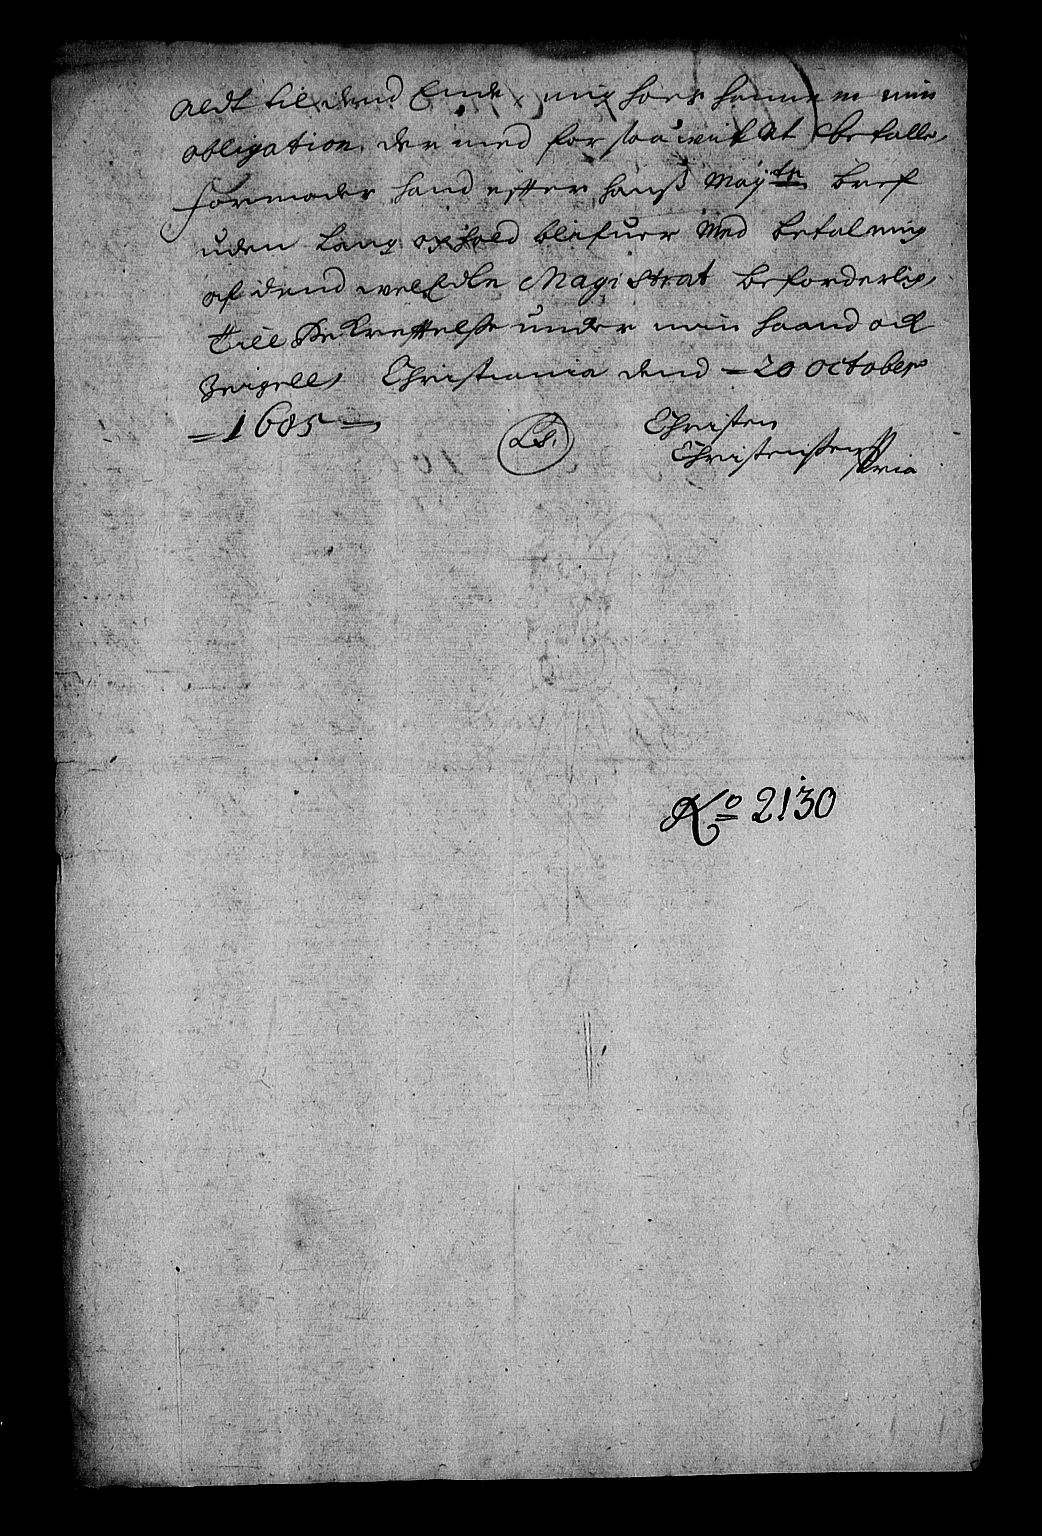 Aldt til dend Ende, mig hoes hannem min
obligation, der med for saa wit at befalle,
formoder hand efter hanß Maÿ:tz bref
uden lang ophold blifuer med betalning
af dend welEdle Magistrat beforderlig,
Till Bekreftelse under min haand och
Zeigell, Christiania dend 20 October
1685
LS.
Christen
Christenssen
No 2130